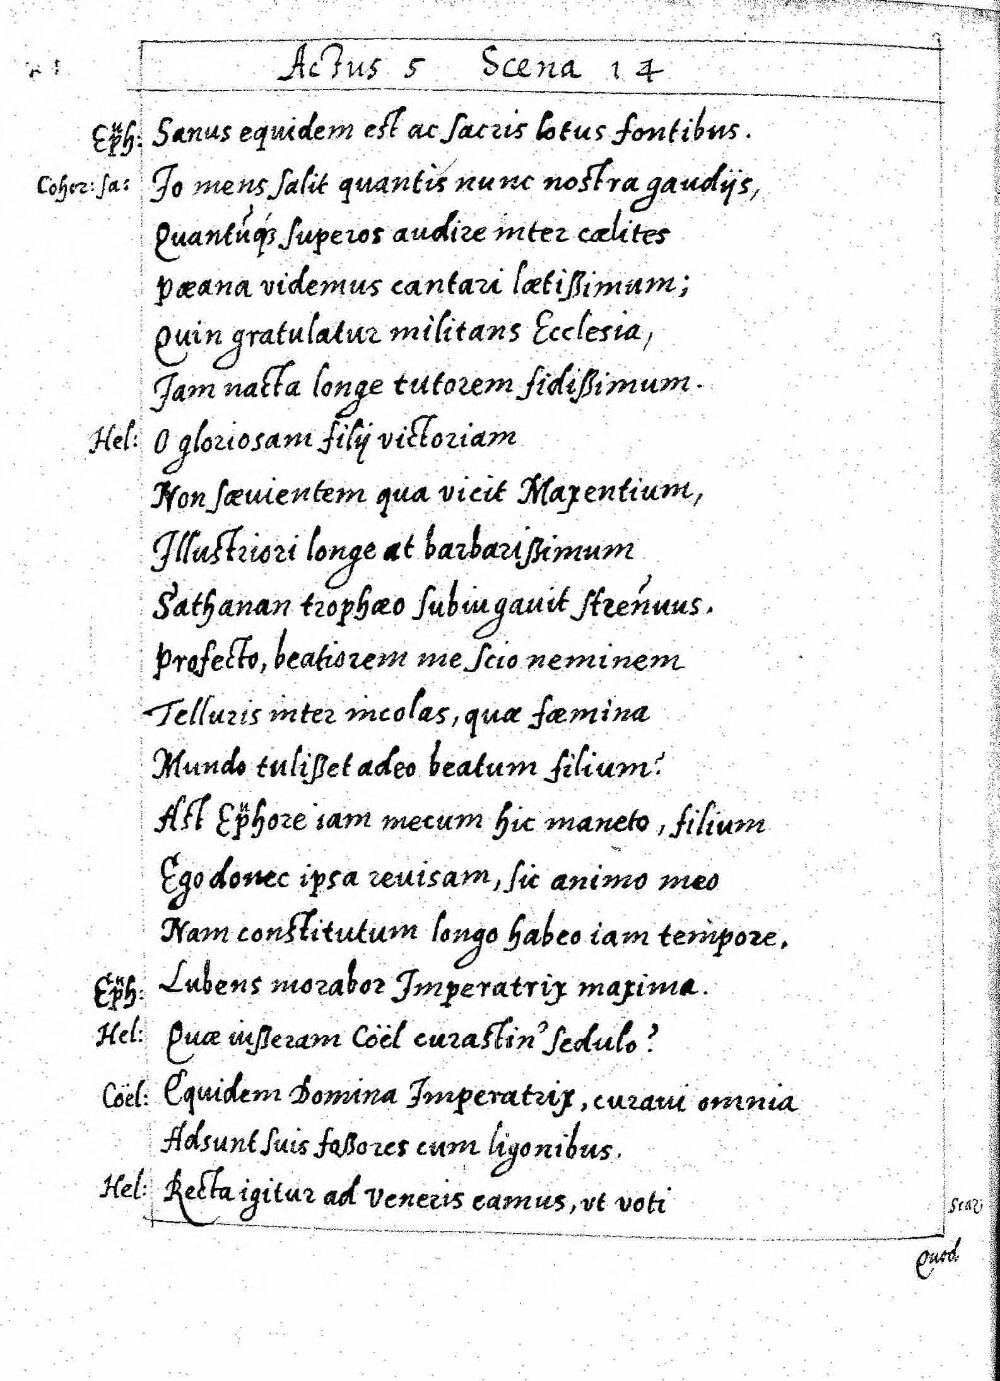 Actus 5 Scena 14
Eph: Sanus equidem est ac sacris lotus fontibus.
Coher: sa: Io mens salit quantis nunc nostra gaudijs,
Quantũq́; superos audire inter cælites
Pæana videmus cantari lætißimum;
Quin gratulatur militans Ecclesia,
Iam nacta longe tutorem fidißimum.
Hel: O gloriosam filij victoriam
Non sæuientem qua vicit Maxentium,
Illustriori longe at barbarißimum
Sathanan trophæo subiugauit strenuus.
Profecto, beatiorem me scio neminem
Telluris inter incolas, quæ fæmina
Mundo tulißet adeo beatum filium?
Ast Ephore iam mecum hic maneto, filium
Ego donec ipsa reuisam, sic animo meo
Nam constitutum longo habeo iam tempore.
Eph: Lubens morabor Imperatrix maxima.
Hel: Quæ iußeram Cöel curastin' sedulo?
Cöel: Equidem Domina Imperatrix, curaui omnia
Adsunt suis foßores cum ligonibus.
Hel: Recta igitur ad Veneris eamus, vt voti
Quod